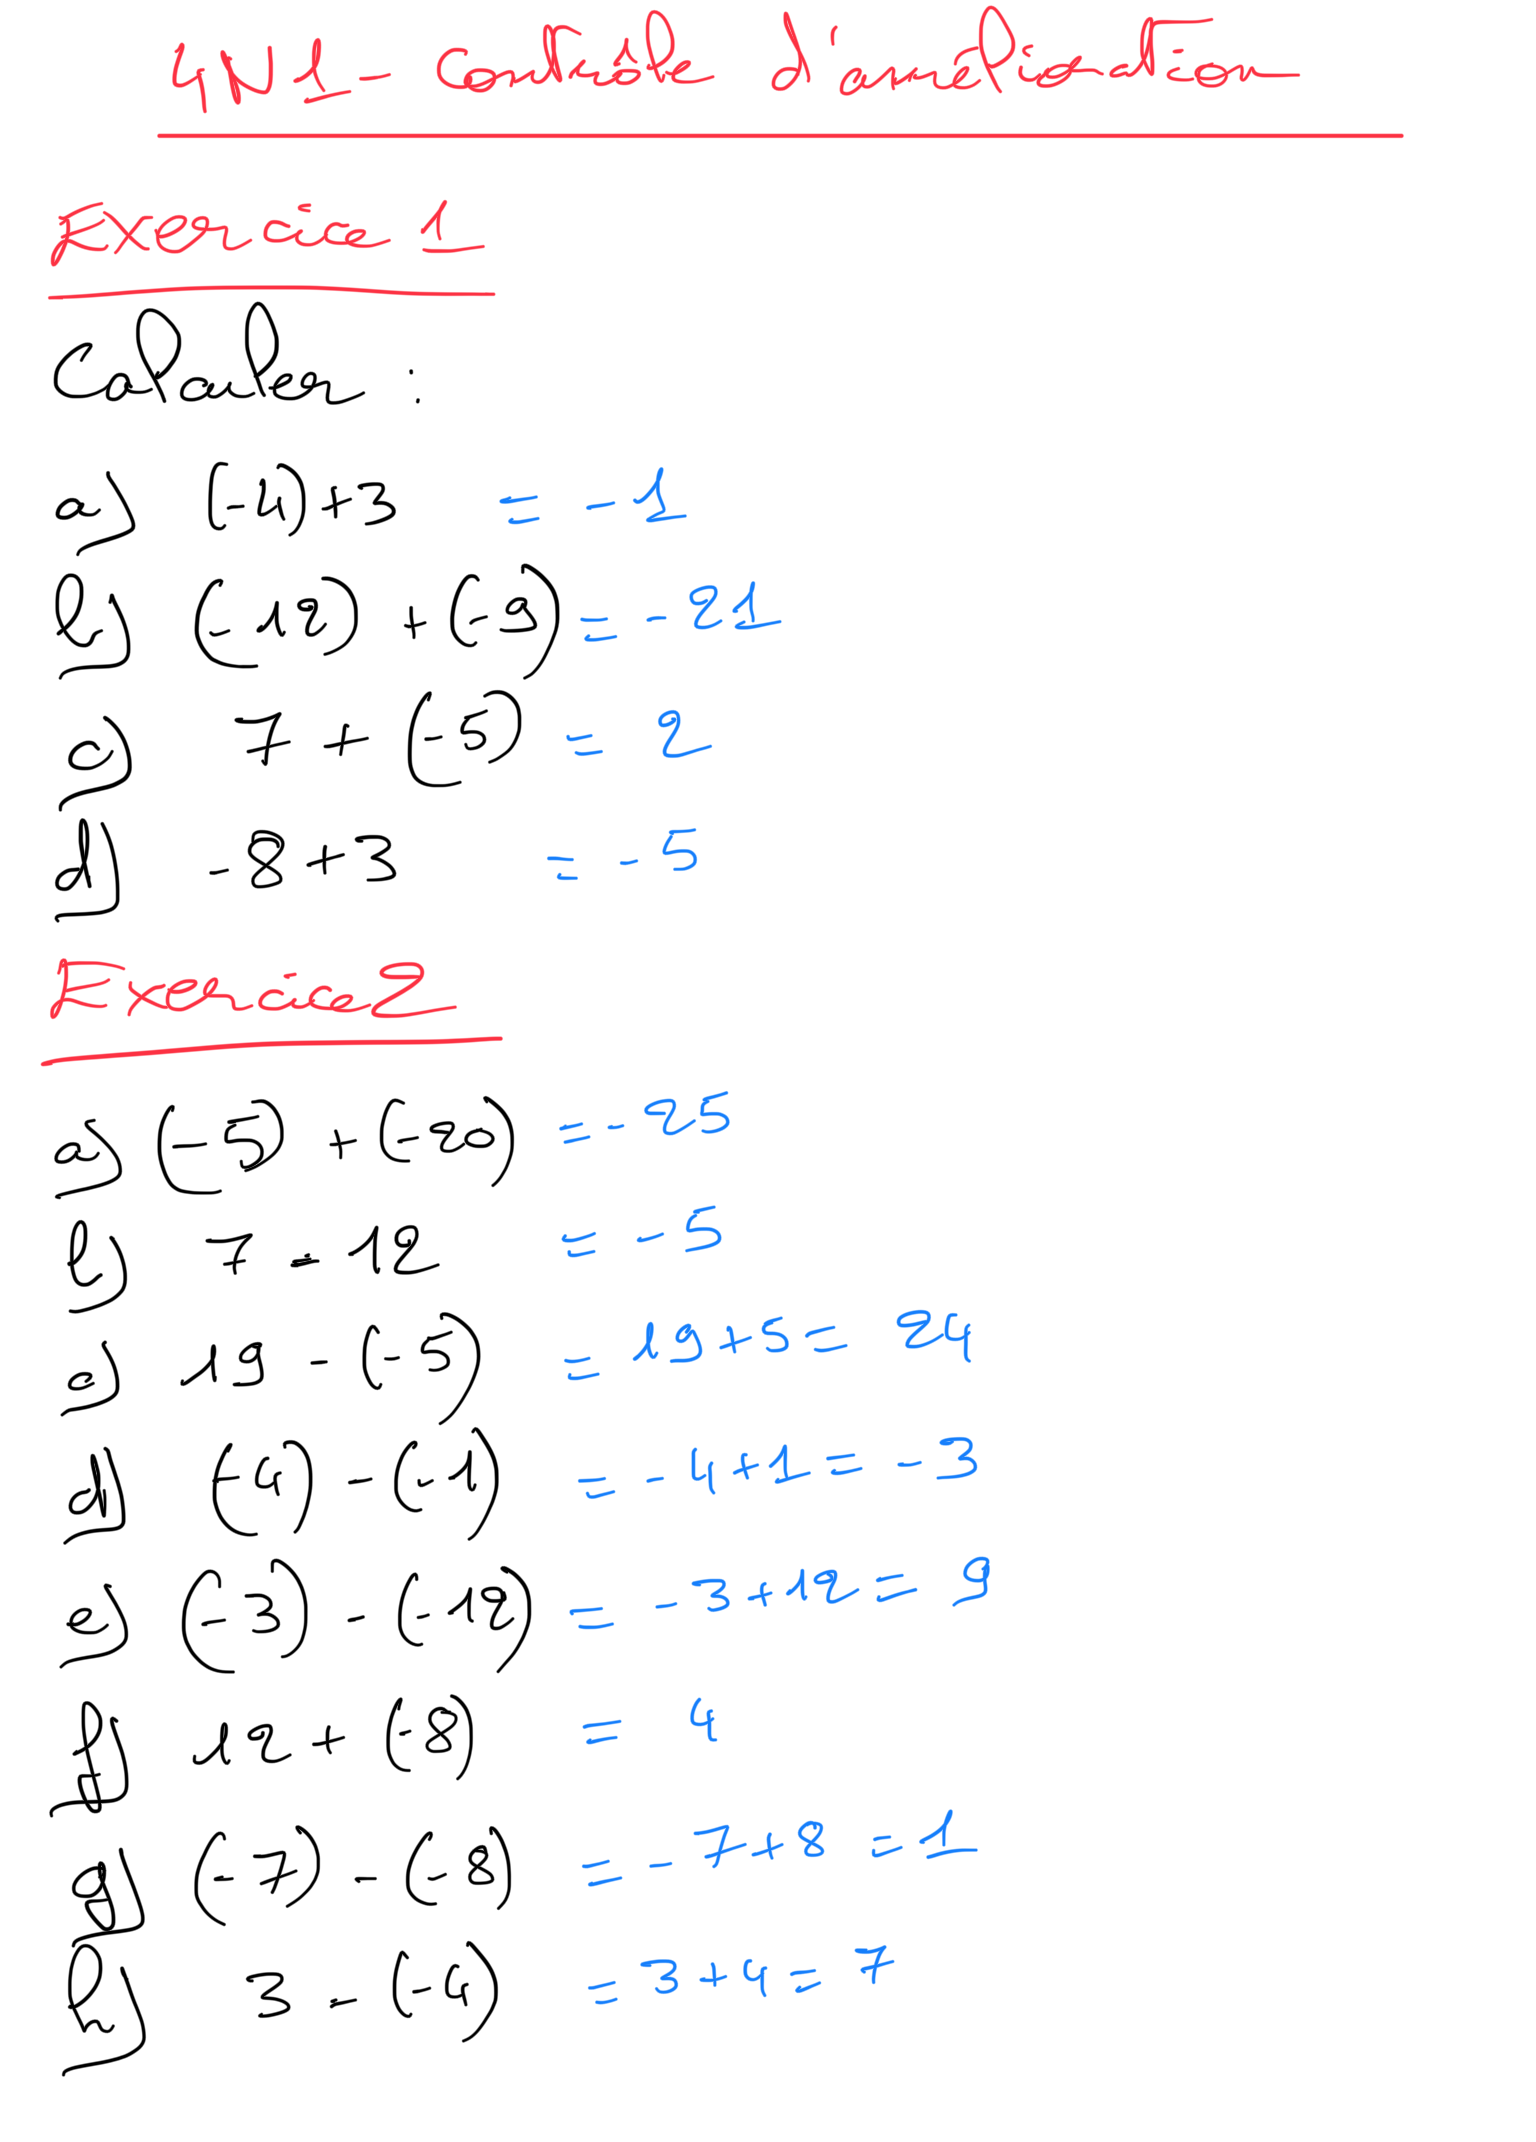 4N1 - Contrôle d'amélioration
Exercice 1
Calculer :
a) (-4)+3 = -1
b) (-12) + (-9) = -21
c) 7 + (-5) = 2
d) -8+3 = -5
Exercice 2
a) (-5) + (-20) = -25
b) 7 - 12 = -5
c) 19 - (-5) = 19+5 = 24
d) (-4) - (-1) = -4+1 = -3
e) (-3) - (-12) = -3+12 = 9
f) 12 + (-8) = 4
g) (-7) - (-8) = -7+8 = 1
h) 3 - (-4) = 3+4 = 7